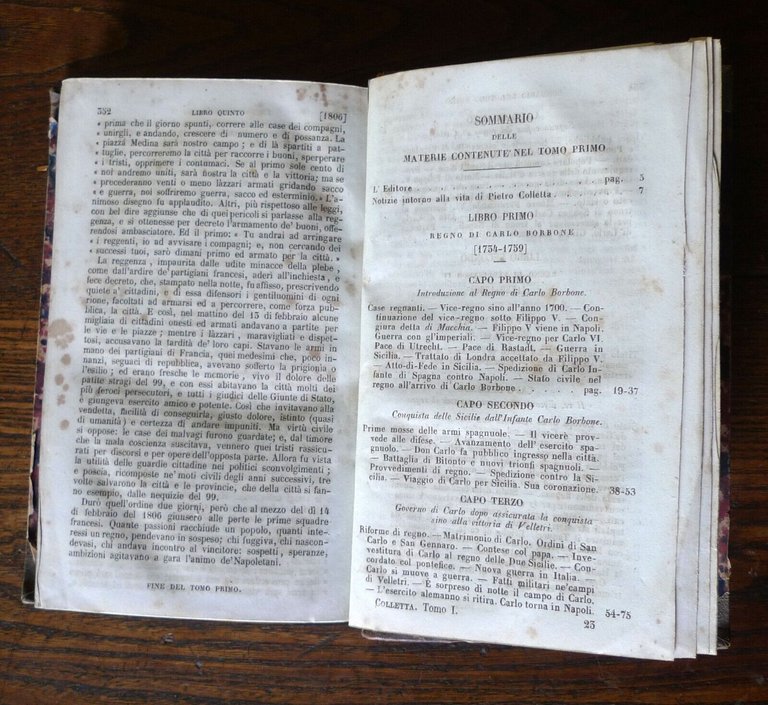 352 LIBRO QUINTO [1806]
« prima che il giorno spunti, correre alle case dei compagni,
« unirgli, e andando, crescere di numero e di possanza. La
« piazza Medina sarà nostro campo; e di là spartiti a pat-
« tuglie, percorreremo la città per raccorre i buoni, sperperare
« i tristi, opprimere i contumaci. Se al primo sole cento di
« noi andremo uniti, sarà nostra la città e la vittoria; ma se
« precederanno venti o meno làzzari armati gridando sacco
« e guerra, noi soffriremo guerra, sacco ed esterminio. » L'a-
nimoso disegno fu applaudito. Altri, più rispettoso alle leggi,
con bel dire aggiunse che di quei pericoli si parlasse alla reg-
genza, e si ottenesse per decreto l'armamento de' buoni, offe-
rendosi ambasciatore. Ed il primo: « Tu andrai ad arringare
« i reggenti, io ad avvisare i compagni; e, non cercando dei
« successi tuoi, sarò dimani primo ed armato per la città. »
La reggenza, impaurita dalle udite minacce della plebe,
come dall'ardire de' partigiani francesi, aderì all'inchiesta, e
fece decreto, che, stampato nella notte, fu affisso, prescrivendo
quiete a' cittadini, e di essa difensori i gentiluomini di ogni
ordine, facoltati ad armarsi ed a percorrere, come forza pub-
blica, la città. E così, nel mattino del 13 di febbraio alcune
migliaia di cittadini onesti ed armati andavano a partite per
le vie e le piazze; mentre i làzzari, maravigliati e dispet-
tosi, accusavano la tardità de' loro capi. Stavano le armi in
mano dei partigiani di Francia, quei medesimi che, poco in-
nanzi, seguaci di repubblica, avevano sofferto la prigionia o
l'esilio; ed erano fresche le memorie, vivo il dolore delle
patite stragi del 99, e con essi abitavano la città molti dei
più feroci persecutori, e tutti i giudici delle Giunte di Stato,
e giungeva esercito amico e potente. Così che invitavano alla
vendetta, facilità di conseguirla, giusto dolore, istinto (quasi
di umanità) e certezza di andare impuniti. Ma virtù civile
si oppose: le case dei malvagi furono guardate; e, dal timore
che la mala coscienza suscitava, vennero quei tristi rassicu-
rati per discorsi e per opere dell'opposta parte. Allora fu vista
la utilità delle guardie cittadine nei politici sconvolgimenti;
e poscia, ricomposte ne' moti civili degli anni successivi, tre
volte salvarono la città e le provincie, che della città si fan-
no esempio, dalle nequizie del 99.
Durò quell'ordine due giorni, però che al mezzo del dì 14
di febbraio del 1806 giunsero alle porte le prime squadre
francesi. Quante passioni racchiude un popolo, quanti inte-
ressi un regno, pendevano in sospeso; chi fuggiva, chi nascon-
devasi, chi andava incontro al vincitore: sospetti, speranze,
ambizioni agitavano a gara l'animo de' Napoletani.
FINE DEL TOMO PRIMO.
SOMMARIO
DELLE
MATERIE CONTENUTE NEL TOMO PRIMO
L'Editore . . . . . . . . . . pag. 5
Notizie intorno alla vita di Pietro Colletta . . . . . 7
LIBRO PRIMO
REGNO DI CARLO BORBONE
[1734-1759]
CAPO PRIMO
Introduzione al Regno di Carlo Borbone.
Case regnanti. — Vice-regno sino all'anno 1700. — Con-
tinuazione del vice-regno sotto Filippo V. — Con-
giura detta di Macchia. — Filippo V viene in Napoli.
Guerra con gl'imperiali. — Vice-regno per Carlo VI.
Pace di Utrecht. — Pace di Rastadt. — Guerra in
Sicilia. — Trattato di Londra accettato da Filippo V.
— Atto-di-Fede in Sicilia. — Spedizione di Carlo In-
fante di Spagna contro Napoli. — Stato civile nel
regno all'arrivo di Carlo Borbone . . . . pag. 19-37
CAPO SECONDO
Conquista delle Sicilie dall'Infante Carlo Borbone.
Prime mosse delle armi spagnuole. — Il vicerè prov-
vede alle difese. — Avanzamento dell'esercito spa-
gnuolo. — Don Carlo fa pubblico ingresso nella città.
— Battaglia di Bitonto e nuovi trionfi spagnuoli. —
Provvedimenti di regno. — Spedizione contro la Si-
cilia. — Viaggio di Carlo per Sicilia. Sua coronazione. 38-53
CAPO TERZO
Governo di Carlo dopo assicurata la conquista
sino alla vittoria di Velletri.
Riforme di regno. — Matrimonio di Carlo. Ordini di San
Carlo e San Gennaro. — Contese col papa. — Inve-
stitura di Carlo al regno delle Due Sicilie. — Con-
cordato col pontefice. — Nuova guerra in Italia. —
Carlo si muove a guerra. — Fatti militari ne' campi
di Velletri. — È sorpreso di notte il campo di Carlo.
— L'esercito alemanno si ritira. Carlo torna in Napoli. 54-75
COLLETTA. Tomo I. 23